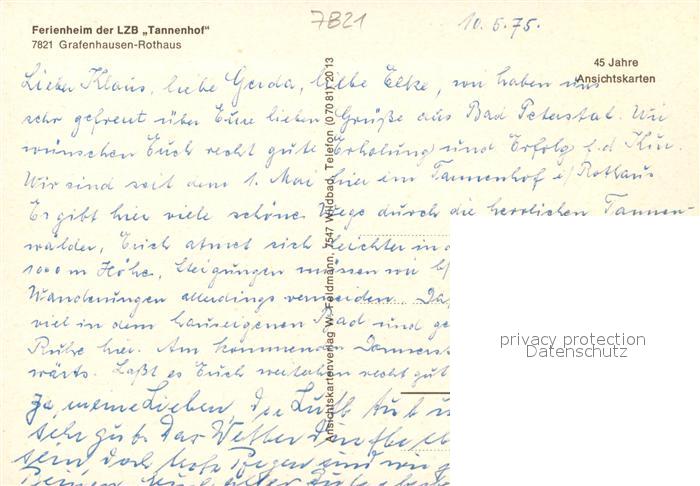 Ferienheim der LZB „Tannenhof“
7821 Grafenhausen-Rothaus
7821
10.5.75.
45 Jahre
Ansichtskarten
Lieber Klaus, liebe Gerda, liebe Elke, wir haben uns
sehr gefreut über Eure lieben Grüße aus Bad Peterstal. Wir
wünschen Euch recht gute Erholung und Erfolg f. d. Kur.
Wir sind seit dem 1. Mai hier im Tannenhof i/ Rothaus
Es gibt hier viele schöne Wege durch die herrlichen Tannen-
wälder, Erich atmet sich leichter in
1000 m Höhe, Steigungen müssen wir b/
Wanderungen allerdings vermeiden.
viel in dem hauseigenen Bad und
Ruhe hier. Am kommenden Donnerst
wärts. Laßt es Euch weiterhin recht gut
Ja, meine Lieben, die Luft tut u
sehr gut. Das Wetter dürfte
sein, doch trotz Regen sind wir
Ansichtskartenverlag W. Feldmann, 7547 Wildbad, Telefon (0 70 81) 20 13
privacy protection
Datenschutz